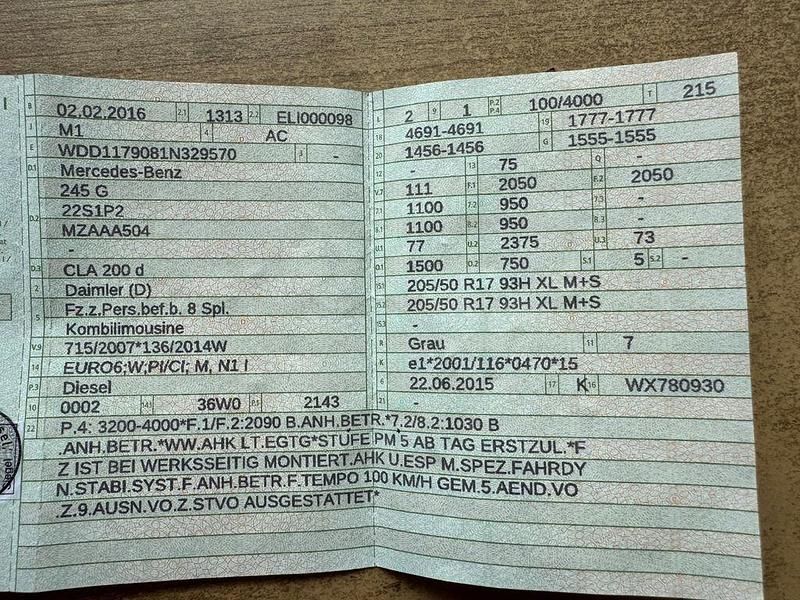 B 02.02.2016 2.1 1313 2.2 ELI000098
J M1 4 AC
E WDD1179081N329570 3 -
D.1 Mercedes-Benz
245 G
D.2 22S1P2
MZAAA504
-
D.3 CLA 200 d
2 Daimler (D)
5 Fz.z.Pers.bef.b. 8 Spl.
Kombilimousine
V.9 715/2007*136/2014W
14 EURO6;W;PI/CI; M, N1 I
P.3 Diesel
10 0002 14.1 36W0 P.1 2143
L 2 9 1 P.2 P.4 100/4000 T 215
18 4691-4691 19 1777-1777
20 1456-1456 G 1555-1555
12 - 13 75 Q -
V.7 111 F.1 2050 F.2 2050
7.1 1100 7.2 950 7.3 -
8.1 1100 8.2 950 8.3 -
U.1 77 U.2 2375 U.3 73
O.1 1500 O.2 750 S.1 5 S.2 -
15.1 205/50 R17 93H XL M+S
15.2 205/50 R17 93H XL M+S
15.3 -
R Grau 11 7
K e1*2001/116*0470*15
6 22.06.2015 17 K 16 WX780930
21 -
22 P.4: 3200-4000*F.1/F.2:2090 B.ANH.BETR.*7.2/8.2:1030 B
.ANH.BETR.*WW.AHK LT.EGTG*STUFE PM 5 AB TAG ERSTZUL.*F
Z IST BEI WERKSSEITIG MONTIERT.AHK U.ESP M.SPEZ.FAHRDY
N.STABI.SYST.F.ANH.BETR.F.TEMPO 100 KM/H GEM.5.AEND.VO
.Z.9.AUSN.VO.Z.STVO AUSGESTATTET*